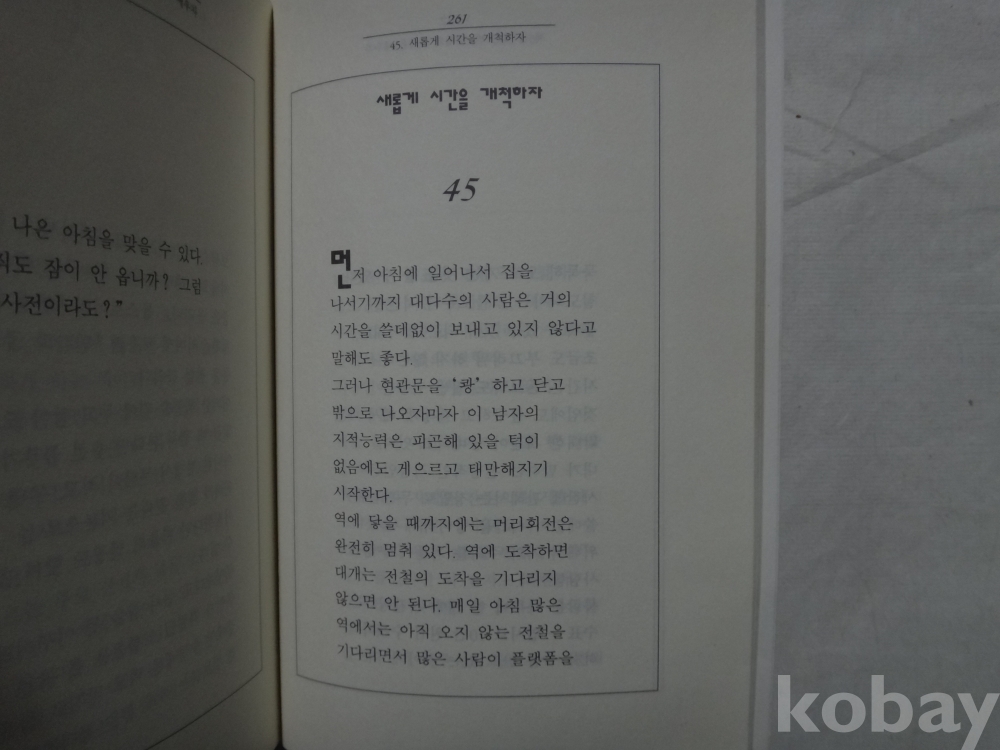 나은 아침을 맞을 수 있다.
잠이 안 옵니까? 그럼
사전이라도?”
261
45. 새롭게 시간을 개척하자
새롭게 시간을 개척하자
45
먼저 아침에 일어나서 집을
나서기까지 대다수의 사람은 거의
시간을 쓸데없이 보내고 있지 않다고
말해도 좋다.
그러나 현관문을 ‘쾅’ 하고 닫고
밖으로 나오자마자 이 남자의
지적능력은 피곤해 있을 턱이
없음에도 게으르고 태만해지기
시작한다.
역에 닿을 때까지에는 머리회전은
완전히 멈춰 있다. 역에 도착하면
대개는 전철의 도착을 기다리지
않으면 안 된다. 매일 아침 많은
역에서는 아직 오지 않는 전철을
기다리면서 많은 사람이 플랫폼을
kobay